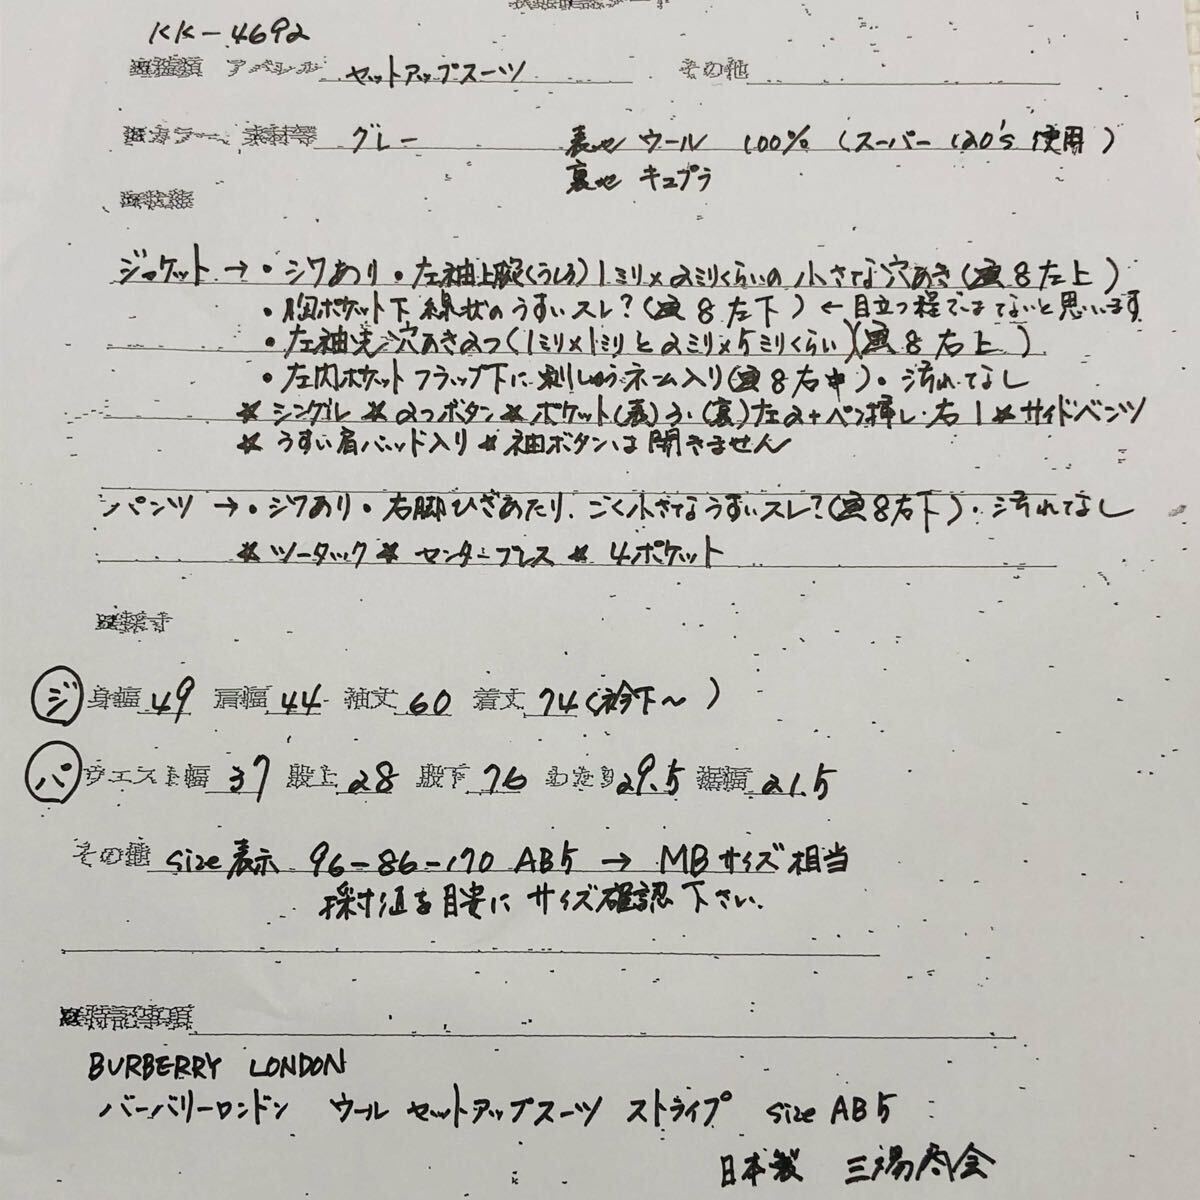 KK-4692
アパレル セットアップスーツ その他
カラー・素材等 グレー 表地 ウール 100% (スーパー120's使用)
裏地 キュプラ
ジャケット → ・シワあり・左袖上腕(うしろ)1ミリ×2ミリくらいの小さな穴あき(画8左上)
・胸ポケット下 線状のうすいスレ?(画8左下) ← 目立つ程ではないと思います
・左袖先穴あき2つ(1ミリ×1ミリと2ミリ×5ミリくらい)(画8右上)
・左内ポケットフラップ下に刺しゅうネーム入り(画8右中)・汚れなし
＊シングル ＊2つボタン ＊ポケット(表)3・(裏)左2+ペン挿し・右1 ＊サイドベンツ
＊うすい肩パッド入り ＊袖ボタンは開きません
パンツ → ・シワあり・右脚ひざあたり、ごく小さなうすいスレ?(画8右下)・汚れなし
＊ツータック ＊センタープレス ＊4ポケット
ジ 身幅 49 肩幅 44 袖丈 60 着丈 74(衿下～)
パ ウエスト幅 37 股上 28 股下 76 わたり 29.5 裾幅 21.5
その他 size表示 96-86-170 AB5 → MBサイズ相当
採寸値を目安にサイズ確認下さい.
特記事項
BURBERRY LONDON
バーバリーロンドン ウール セットアップスーツ ストライプ size AB5
日本製 三陽商会